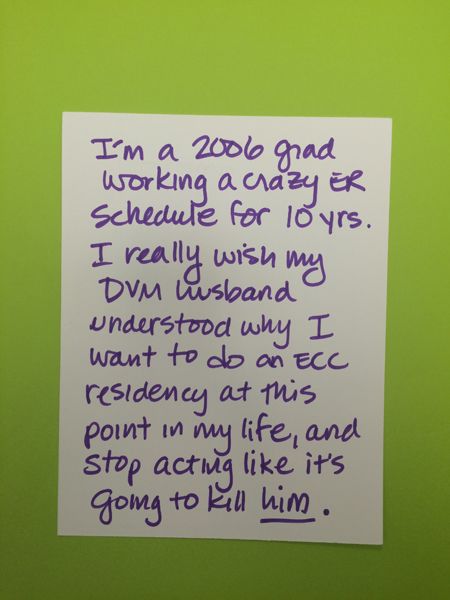 I'm a 2006 grad
working a crazy ER
schedule for 10 yrs.
I really wish my
DVM husband
understood why I
want to do an ECC
residency at this
point in my life, and
stop acting like it's
going to kill him.